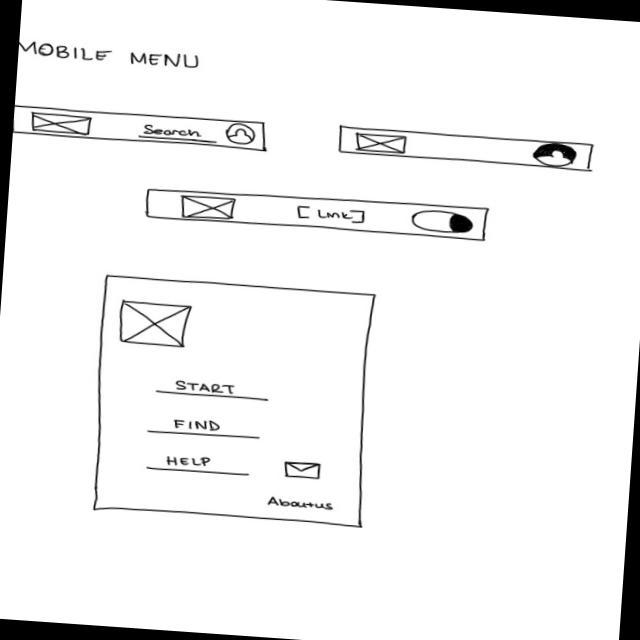 MOBILE MENU
Search
[Link]
START
FIND
HELP
About us